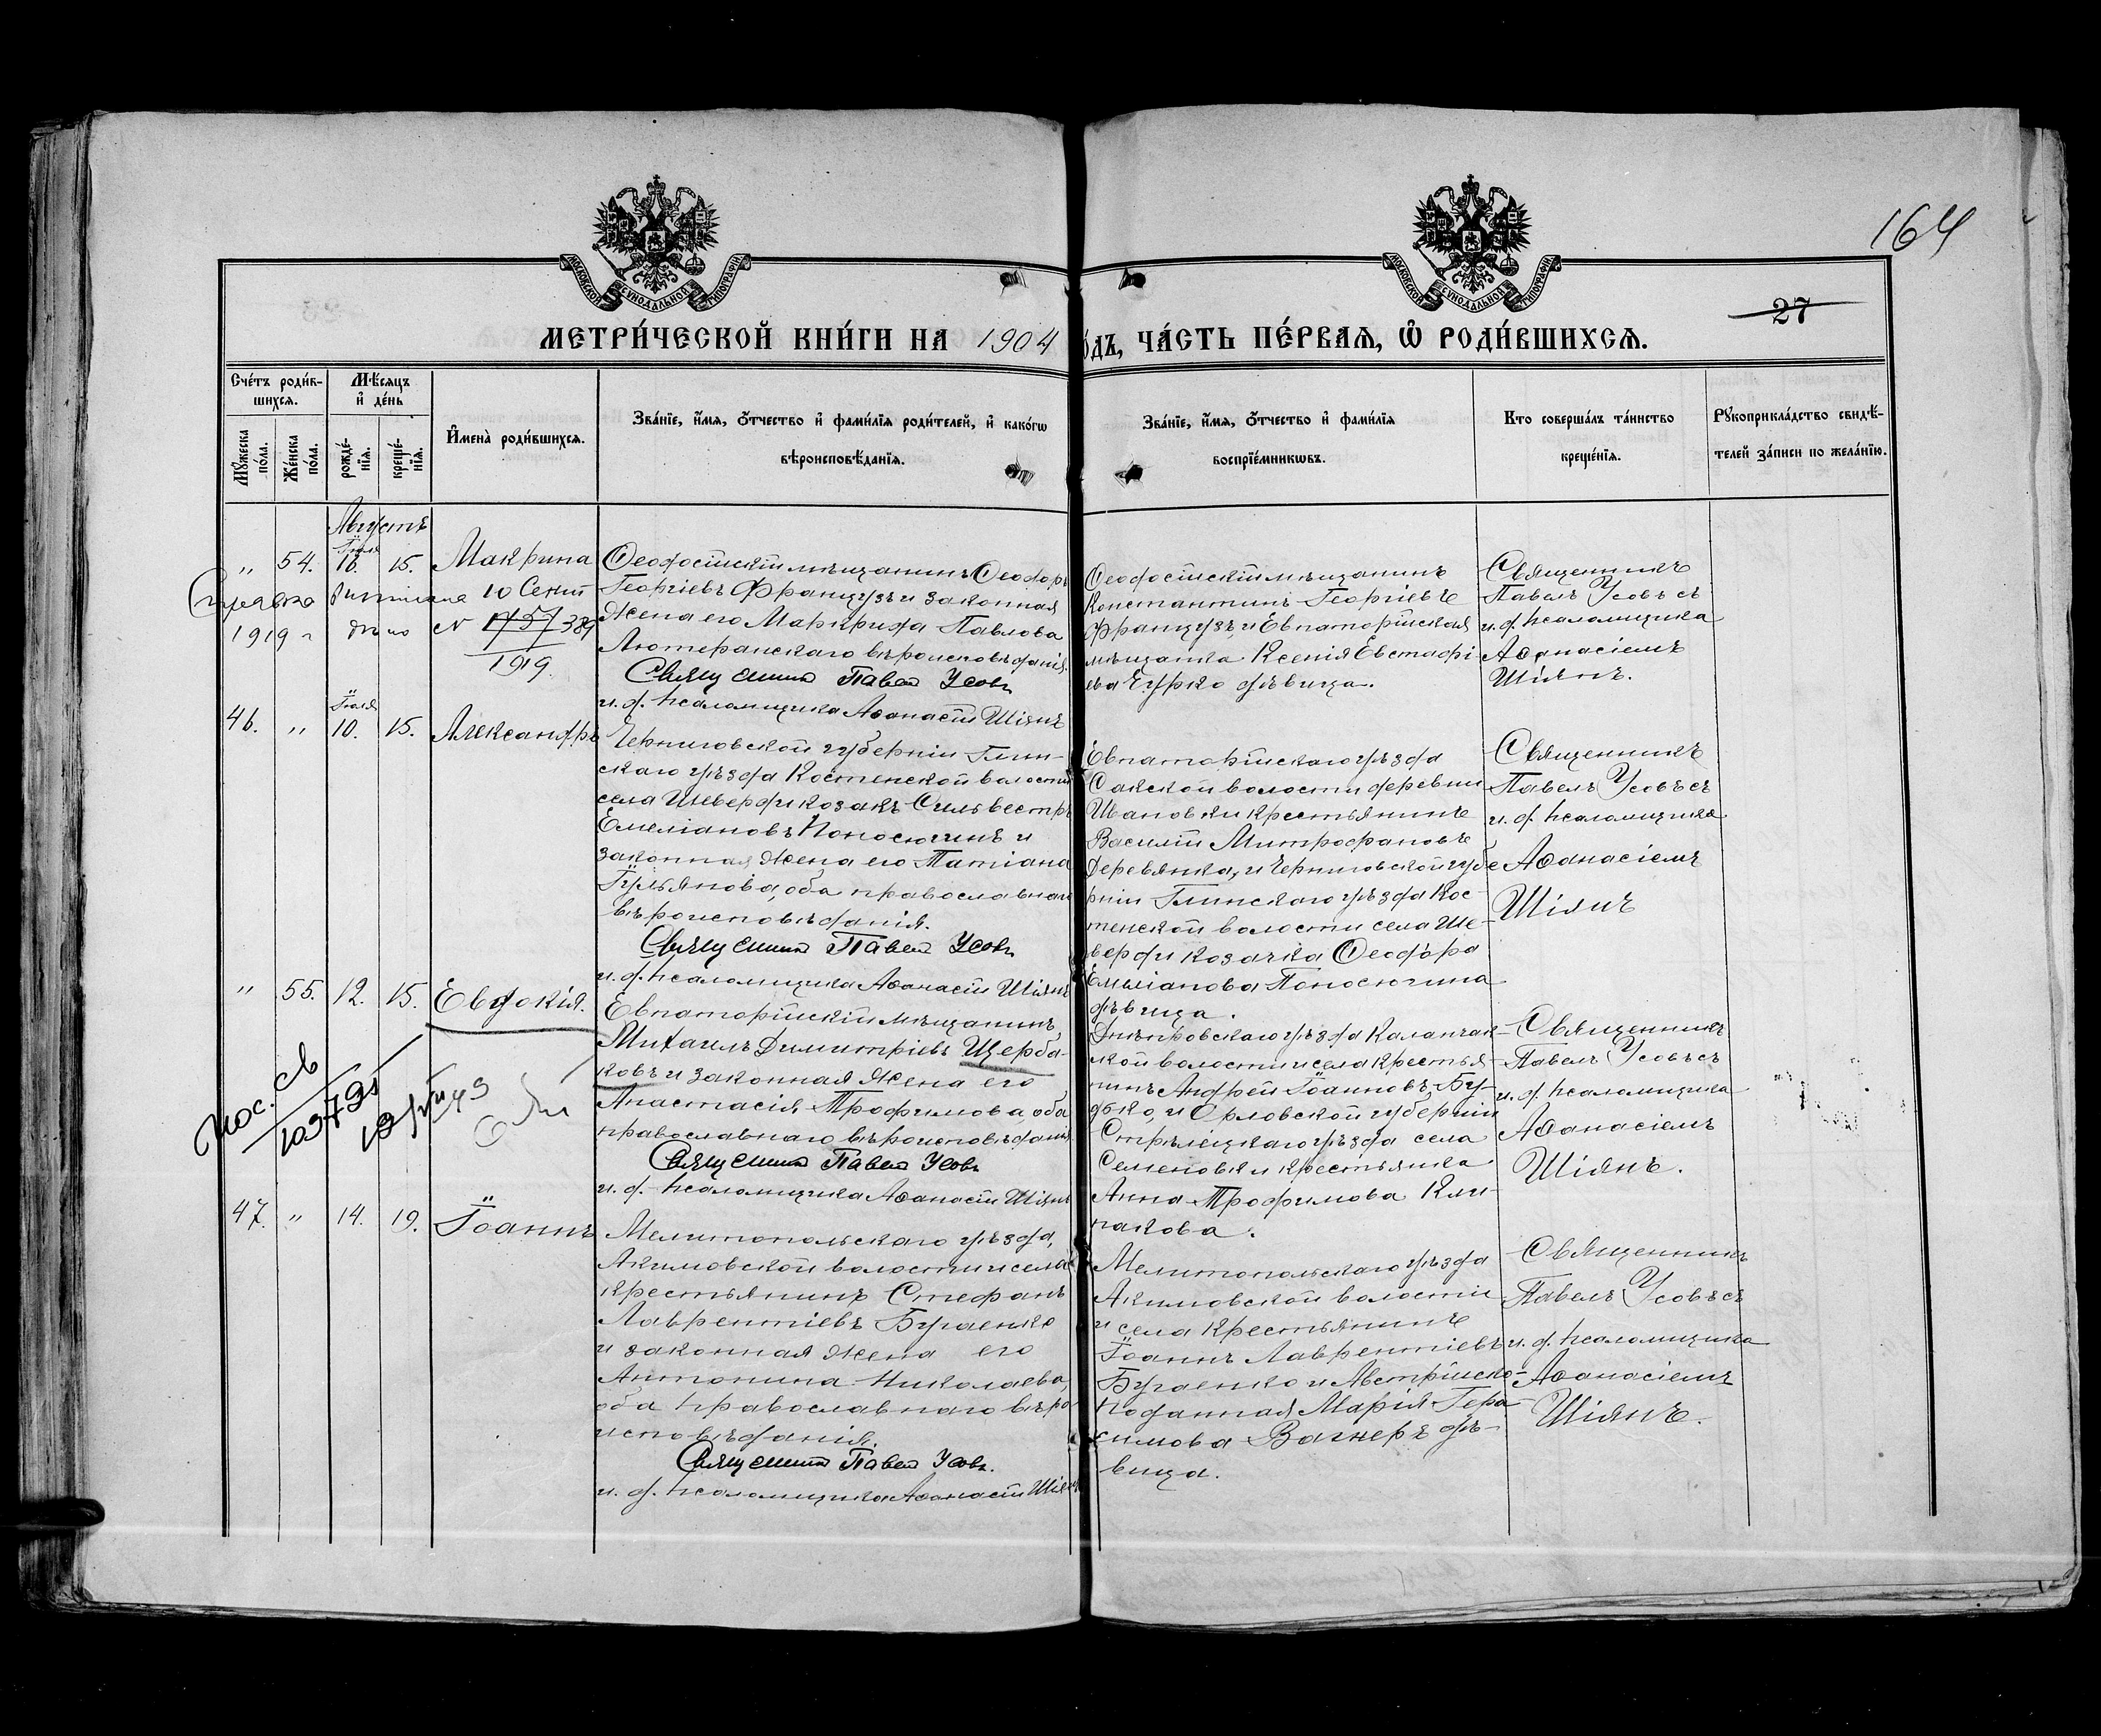 164
МОСКОВСКОЙ СѴНОДАЛЬНОЙ ТИПОГРАФІИ
МОСКОВСКОЙ СѴНОДАЛЬНОЙ ТИПОГРАФІИ
27
МЕТРИ́ЧЕСКОЙ КНИ́ГИ НА 1904
ѠДЪ, ЧА́СТЬ ПЕ́РВАЯ, Ѡ РОДИ́ВШИХСЯ.
Сче́тъ роди́в-
шихся.
Мꙋ́жеска
по́ла.
Же́нска
по́ла.
Мѣ́сяцъ
и҆ де́нь
рожде́-
нїя.
креще́-
нїя.
И҆мена̀ роди́вшихся.
Зва́нїе, и҆́мя, ѻ҆́тчество и҆ фами́лїя роди́телей, и҆ како́гѡ
вѣроисповѣ́данїя.
Зва́нїе, и҆́мя, ѻ҆́тчество и҆ фами́лїя
воспрїе́мникѡвъ.
Кто соверша́лъ та́инство
креще́нїя.
Рꙋкоприкла́дство свидѣ́-
телей за́писи по жела́нїю.
Августъ
Іюля
" 54. 16. 15. Макрина
Справка 10 Сент
1919 г дѣло N 389
1919.
Ѳеодосійскій мѣщанинъ Ѳеодоръ
Георгіевъ Французъ и законная
жена его Маргрида Павлова
Лютеранскаго вѣроисповѣданія.
Священник Павел Усовъ
и. д. псаломщика Аѳанасій Шіянъ
Ѳеодосійскій мѣщанинъ
Константинъ Георгіевъ
Французъ, и Евпаторійская
мѣщанка Ксенія Евстафі-
ева Гурко дѣвица.
Священникъ
Павелъ Усовъ съ
и. д. псаломщика
Аѳанасіемъ
Шіянъ.
Іюля
46. " 10. 15. Александръ
Черниговской губерніи Глин-
скаго уѣзда Костенской волости
села Шеверди козакъ Сильвестръ
Емеліановъ Поносючинъ и
законная жена его Татіана
Гульянова, оба православнаго
вѣроисповѣданія.
Священник Павел Усовъ
и. д. псаломщика Аѳанасій Шіянъ
Евпаторійскаго уѣзда
Сакской волости деревни
Ивановки крестьянинъ
Василій Митрофановъ
Деревянка, и Черниговской губе
рніи Глинскаго уѣзда Кос-
тенской волости села Ше-
верди козачка Ѳеодора
Емыліанова Поносючина
дѣвица.
Священникъ
Павелъ Усовъ съ
и. д. псаломщика
Аѳанасіемъ
Шіянъ
" 55. 12. 15. Евдокія.
Евпаторійскій мѣщанинъ
Михаилъ Димитріевъ Щерба-
ковъ и законная жена его
Анастасія Трофимова, оба
православнаго вѣроисповѣданія
Священник Павел Усовъ
и. д. псаломщика Аѳанасій Шіянъ
Днѣпровскаго уѣзда Каланчак-
ской волости и села крестья-
нинъ Андрей Іоанновъ Бу-
дько, и Орловской губерніи
Стрѣлецкаго уѣзда села
Семеновки крестьянка
Анна Трофимова Кли-
пакова.
Священникъ
Павелъ Усовъ съ
и. д. псаломщика
Аѳанасіемъ
Шіянъ.
47. " 14. 19. Іоаннъ
Мелитопольскаго уѣзда,
Акимовской волости и села
крестьянинъ Стефанъ
Лаврентіевъ Бугаенко
и законная жена его
Антонина Николаева,
оба православнаго вѣро
исповѣданія.
Священник Павел Усовъ.
и. д. псаломщика Аѳанасій Шіянъ
Мелитопольскаго уѣзда
Акимовской волости
и села крестьянинъ
Іоаннъ Лаврентіевъ
Бугаенко и Австрійско-
подданная Марія Гера-
симова Вагнеръ дѣ-
вица.
Священникъ
Павелъ Усовъ съ
и. д. псаломщика
Аѳанасіемъ
Шіянъ.